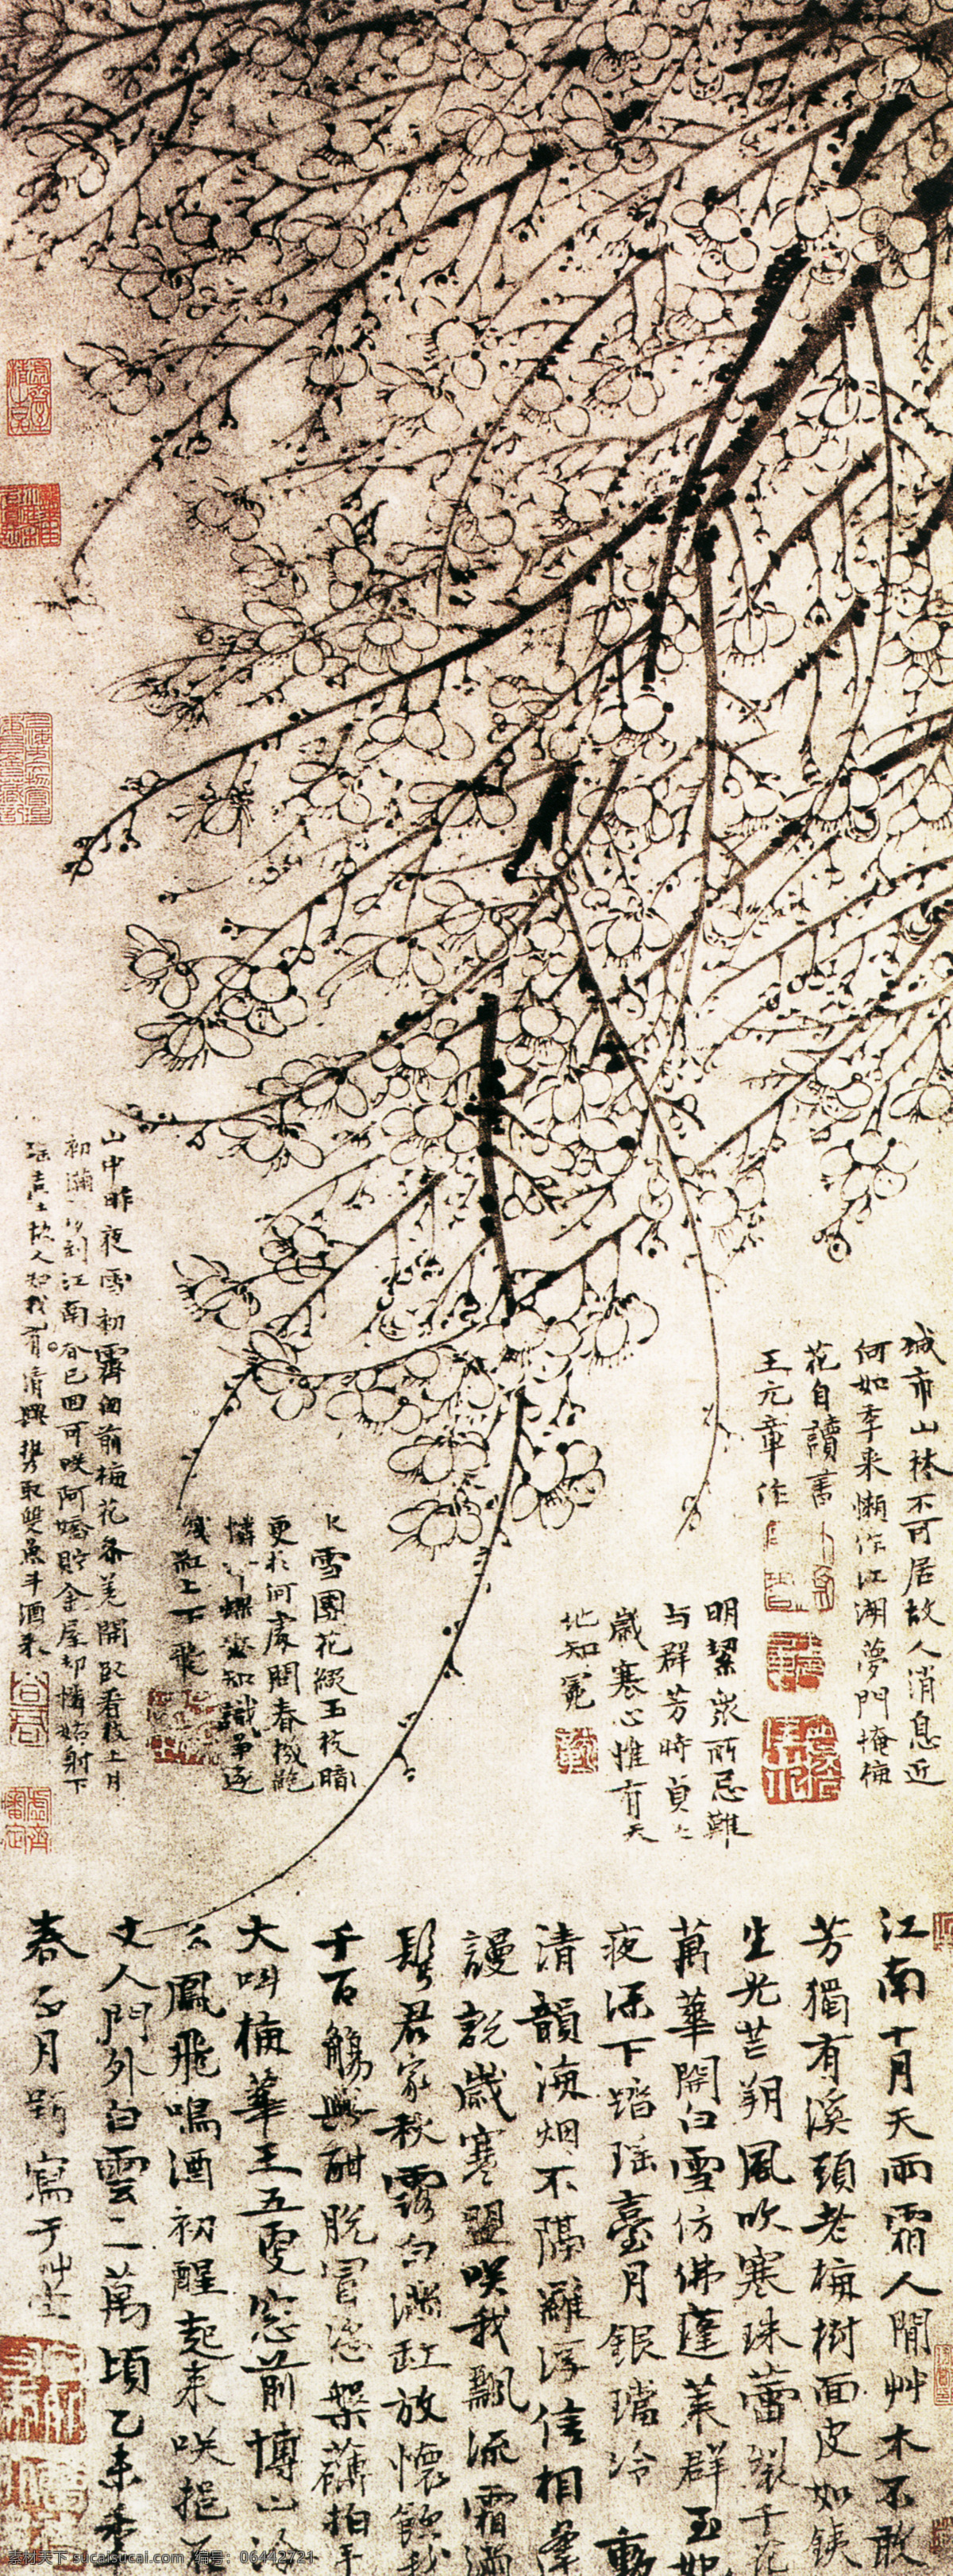 城市山林不可居故人消息近
何如年来懒作江湖夢門掩梅
花自讀書
王元章作
明絜衆所忌難
与群芳時貞〻
歲寒心惟有天
地知
雪團花綴玉枝暗
更於何處問春機
憐 知識爭逐
紅上下飛
山中昨夜雪初霽 前梅花 開 看枝上月
初滿 到江南春已回可咲阿嬌貯金屋却憐姑射下
故人知我有清興携取雙魚斗酒来
江南十月天雨霜人間艸木不敢
芳獨有溪頭老梅樹面皮如鐵
生光芒朔風吹寒珠蕾裂千花
萬華開白雪仿佛蓬萊群玉妃
夜深下踏瑤臺月銀璫冷 動
清韻海烟不隔羅浮信相逢
謾説歲寒盟咲我飄流霜滿
鬢君家秋露白滿缸放懷飲我
千百觴興酣脱冒恣槃薄拍手
大叫梅華王五更窓前博山冷
么鳳飛鳴酒初醒起来咲挹石
丈人門外白雲二萬頃乙未季
春正月 寫于艸堂
素材天下 sucaisucai.com 编号：06442721